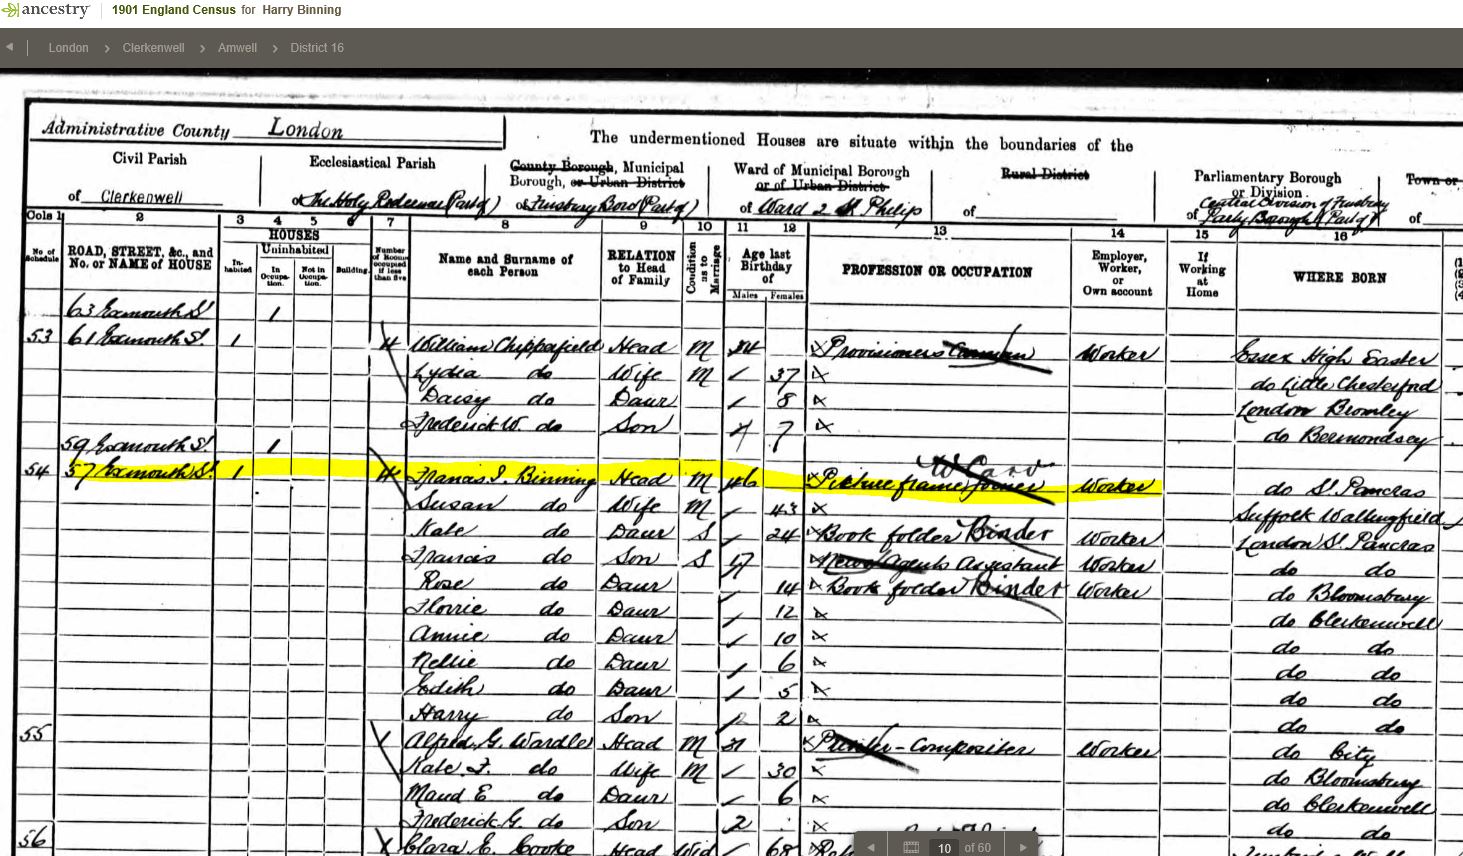 ancestry 1901 England Census for Harry Binning
London > Clerkenwell > Amwell > District 16
Administrative County London
The undermentioned Houses are situate within the boundaries of the
Civil Parish
of Clerkenwell
Ecclesiastical Parish
of The Holy Redeemer (Part of)
County Borough, Municipal
Borough, or Urban District
of Finsbury Boro (Part of)
Ward of Municipal Borough
or of Urban District
of Ward 2 St Philip
Rural District
of
Parliamentary Borough
or Division
of Central Division of Finsbury
Parly Borough (Part of)
Town or
of
Cols 1 2 3 4 5 6 7 8 9 10 11 12 13 14 15 16
No. of Schedule
ROAD, STREET, &c., and No. or NAME of HOUSE
HOUSES
In-habited
Uninhabited
In Occupa-tion.
Not in Occupa-tion.
Building.
Number of Rooms occupied if less than five
Name and Surname of each Person
RELATION to Head of Family
Condition as to Marriage
Age last Birthday of
Males Females
PROFESSION OR OCCUPATION
Employer, Worker, or Own account
If Working at Home
WHERE BORN
63 Exmouth St. 1
53 61 Exmouth St. 1 4 William Chippafield Head M Provisioners Carman Worker Essex High Easter
Lydia do Wife M 37 do Little Chesterford
Daisy do Daur 8 London Bromley
Frederick W. do Son 7 do Bermondsey
59 Exmouth St. 1
54 57 Exmouth St. 1 4 Francis J. Binning Head M 46 Picture frame Joiner Worker do St Pancras
Susan do Wife M 43 Suffolk Wallingfield
Kate do Daur S 24 Book folder Binder Worker London St Pancras
Francis do Son S 17 News Agents Assistant Worker do do
Rose do Daur 14 Book folder Binder Worker do Bloomsbury
Florrie do Daur 12 do Clerkenwell
Annie do Daur 10 do do
Nellie do Daur 6 do do
Edith do Daur 5 do do
Harry do Son 2 do do
55 Alfred G. Wardle Head M 31 Printer-Compositer Worker do City
Kate F. do Wife M 30 do Bloomsbury
Maud E do Daur 6 do Clerkenwell
Frederick G. do Son 2 do do
56 Clara E. Cooke Head Wid 68
10 of 60